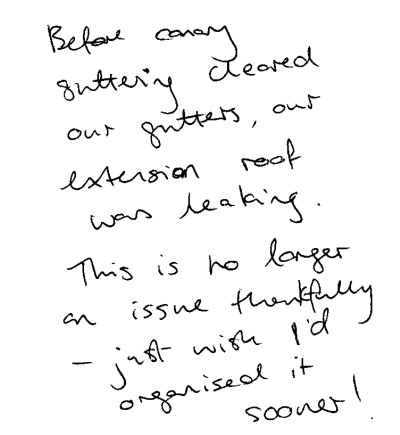 Before canary
guttering cleared
our gutters, our
extension roof
was leaking.
This is no longer
an issue thankfully
– just wish I'd
organised it
sooner!